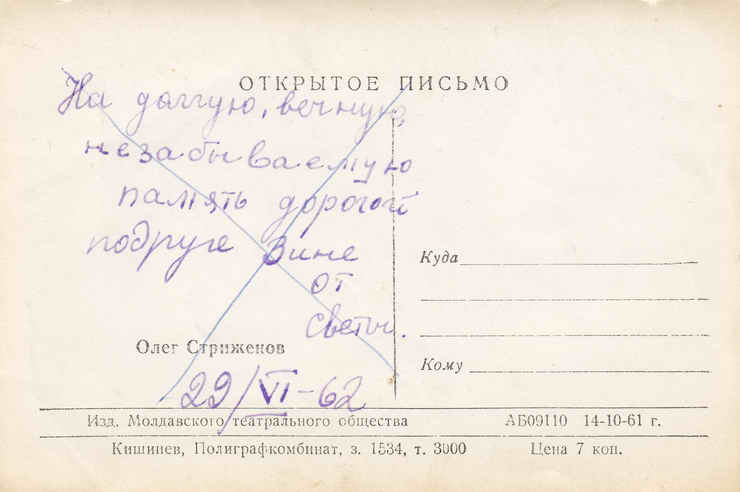 ОТКРЫТОЕ ПИСЬМО
На долгую, вечную,
незабываемую
память дорогой
подруге Зине
от
Светы.
Куда
Олег Стриженов
Кому
29/VI-62
Изд. Молдавского театрального общества АБ09110 14-10-61 г.
Кишинев, Полиграфкомбинат, з. 1534, т. 3000 Цена 7 коп.